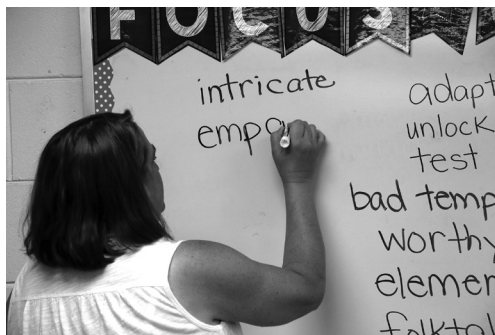 FOCUS
intricate
empo
adapt
unlock
test
bad temp
worthy
elemen
folktal